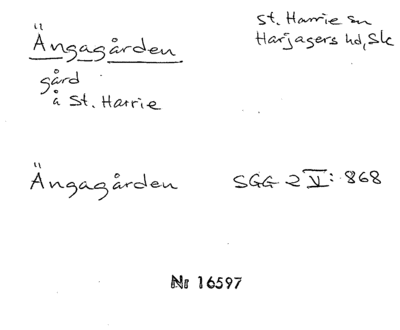 Ängagården
gård
å St. Harrie
St. Harrie sn
Harjagers hd, Sk
Ängagården SGG 2 V: 868
Nr 16597